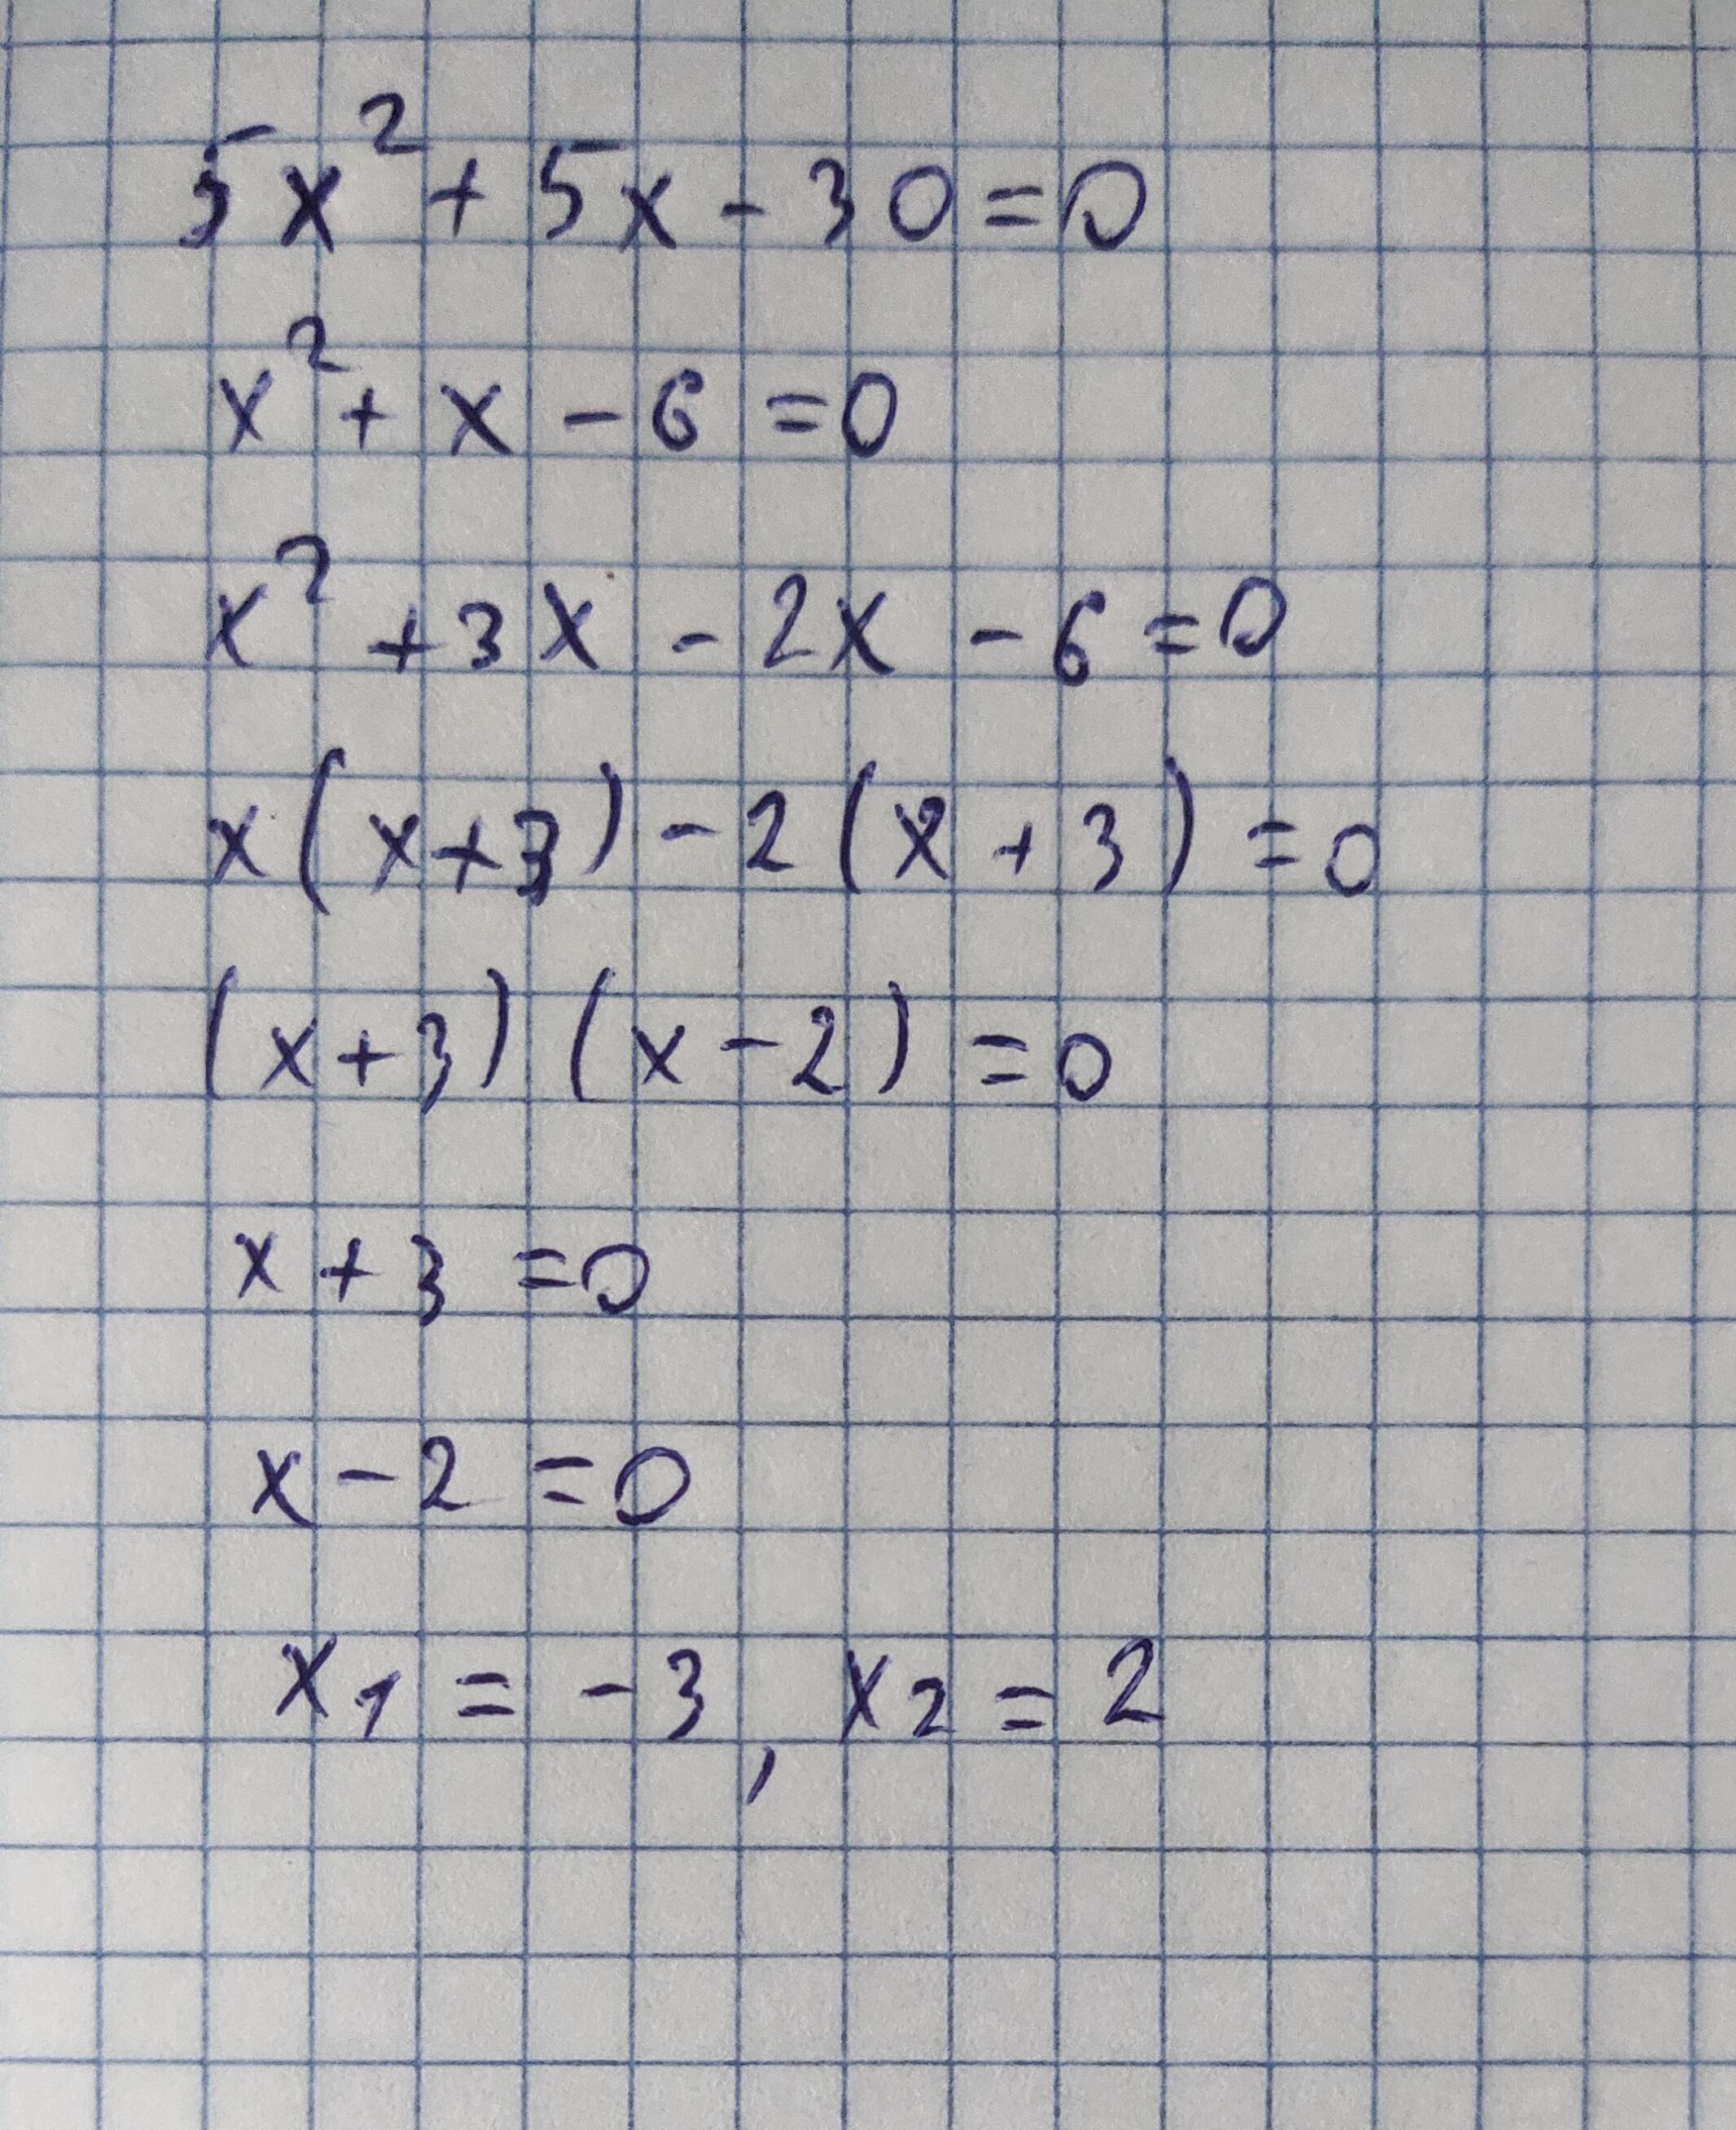 5x² + 5x - 30 = 0
x² + x - 6 = 0
x² + 3x - 2x - 6 = 0
x(x+3) - 2(x+3) = 0
(x+3)(x-2) = 0
x + 3 = 0
x - 2 = 0
x₁ = -3, x₂ = 2